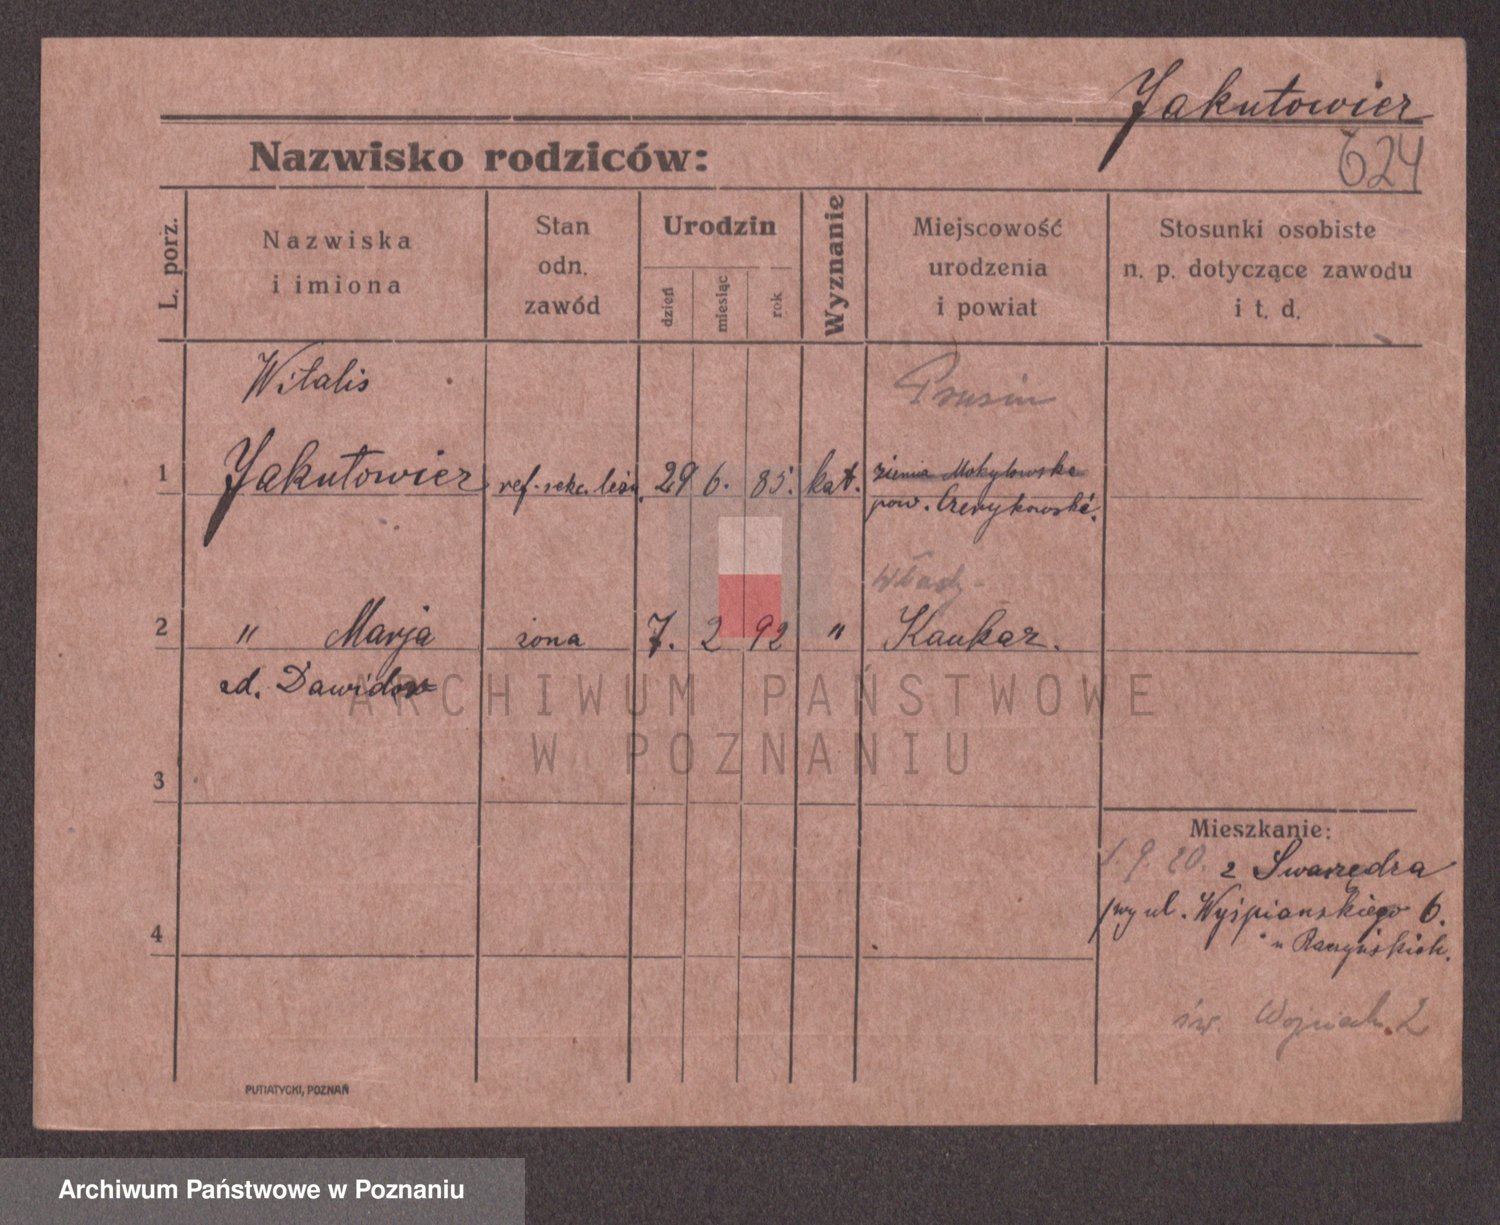 Jakutowicz
624
Nazwisko rodziców:
L. porz.
Nazwiska
i imiona
Stan
odn.
zawód
Urodzin
dzień
miesiąc
rok
Wyznanie
Miejscowość
urodzenia
i powiat
Stosunki osobiste
n. p. dotyczące zawodu
i t. d.
Witalis
1 Jakutowicz 29 6. 85. kat. ziemia
pow.
2 " Marja żona 7. 2 92 " Kaukaz.
zd. Dawidow
3
4
Mieszkanie:
1. 9. 20. z Swarzędza
przy ul. Wyspianskiego 6.
u Raczyńskich.
św. Wojciech. 2
PUTIATYCKI, POZNAŃ
ARCHIWUM PAŃSTWOWE
W POZNANIU
Archiwum Państwowe w Poznaniu